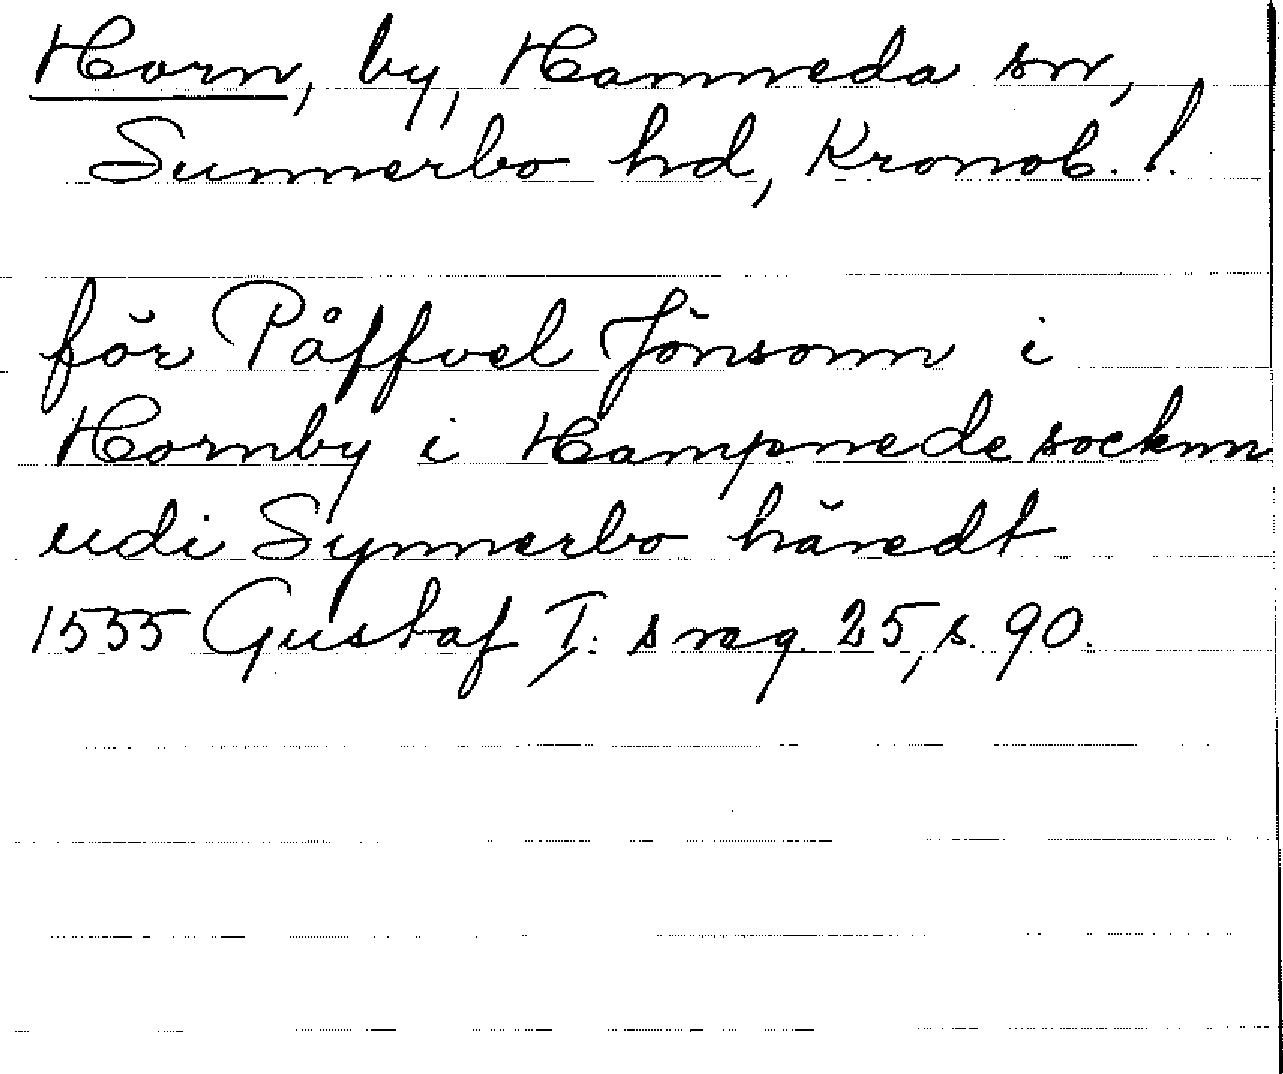 Horn, by, Hamneda sn,
Sunnerbo hd, Kronob. l.
för Påffvel Jönsonn i
Hornby i Hampnede socknn
udi Synnerbo häredt
1555 Gustaf I: s reg. 25, s. 90.